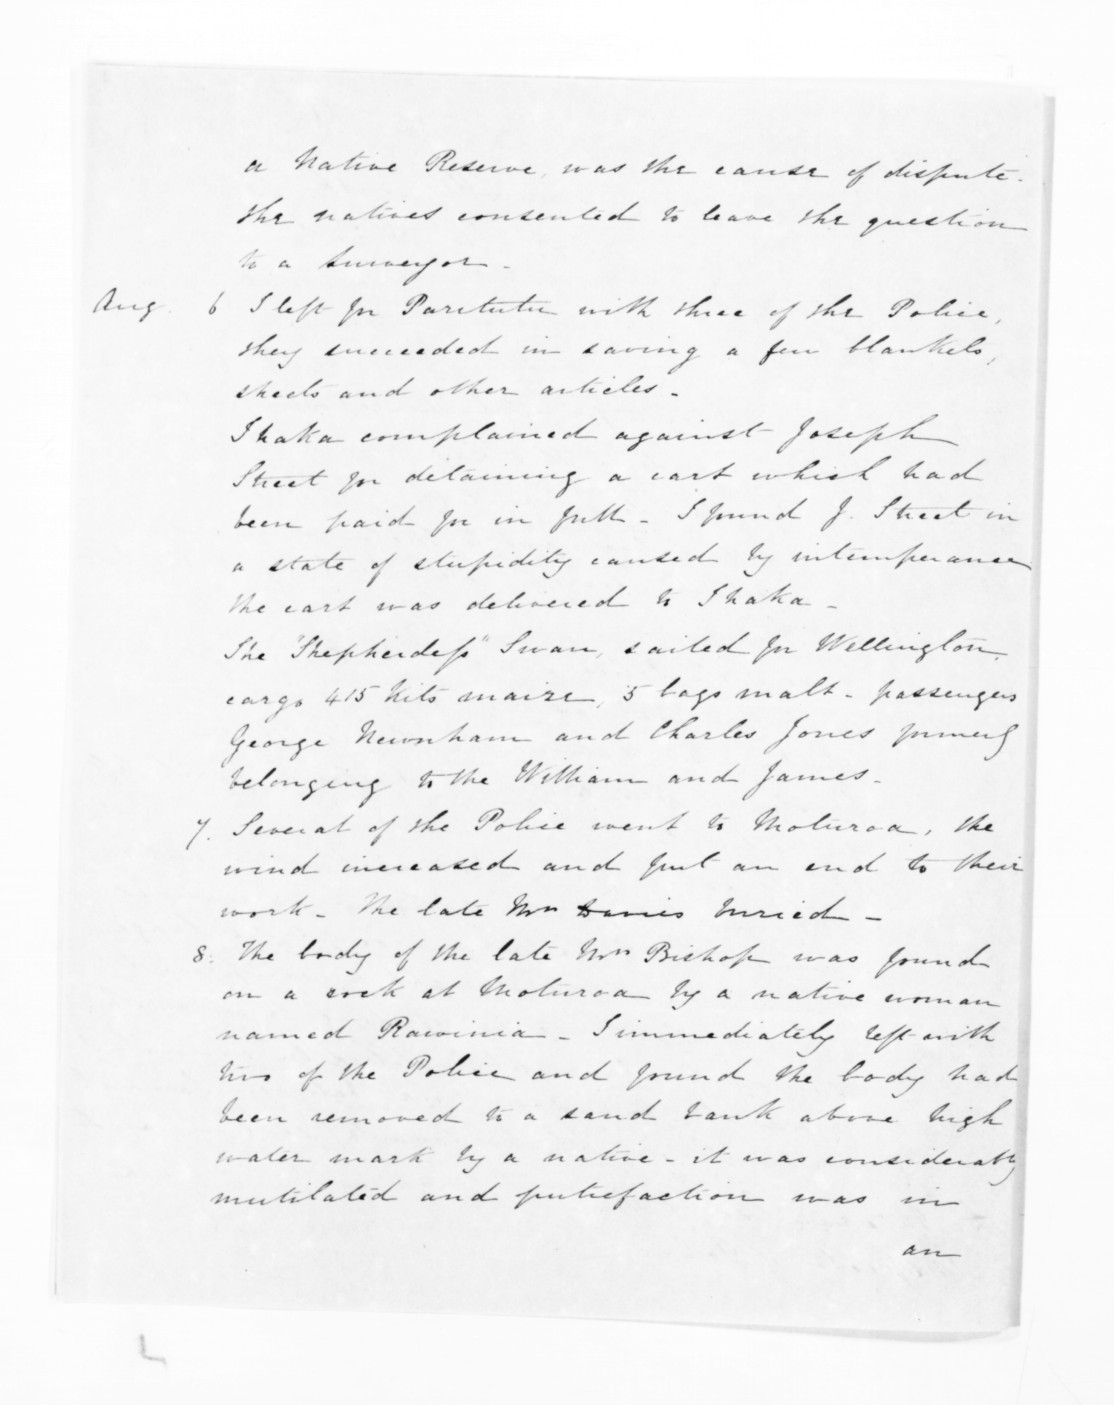 a Native Reserve, was the cause of dispute.
the natives consented to leave the question
to a surveyor -
Aug. 6 I left for Paritutu with three of the Police,
they succeeded in saving a few blankets,
sheets and other articles -
Ihaka complained against Joseph
Street for detaining a cart which had
been paid for in full - I found J. Street in
a state of stupidity caused by intemperance
the cart was delivered to Ihaka -
The "Shepherdess" Swan, sailed for Wellington,
cargo 415 kits maize, 5 bags malt - passengers
George Newnham and Charles Jones formerly
belonging to the William and James -
7. Several of the Police went to Moturoa, the
wind increased and put an end to their
work - The late Mrs Davies buried -
8. The body of the late Mrs Bishop was found
on a rock at Moturoa by a native woman
named Rawinia - I immediately left with
two of the Police and found the body had
been removed to a sand bank above high
water mark by a native - it was considerably
mutilated and putrefaction was in
an